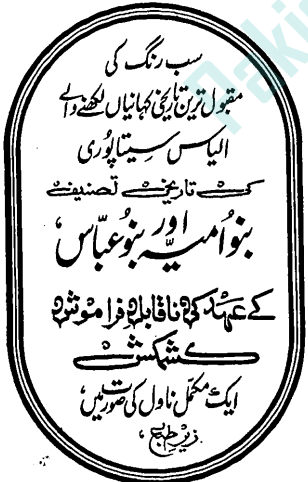 سب رنگ کی
مقبول ترین تاریخی کہانیاں لکھنے والے
الیاس سیتا پوری
کی تاریخی تصنیف
بنو اُمیہ اور بنو عبّاس،
کے عہد کی ناقابلِ فراموش
کشمکش
ایک مکمل ناول کی صورت میں،
زیرِ طبع،